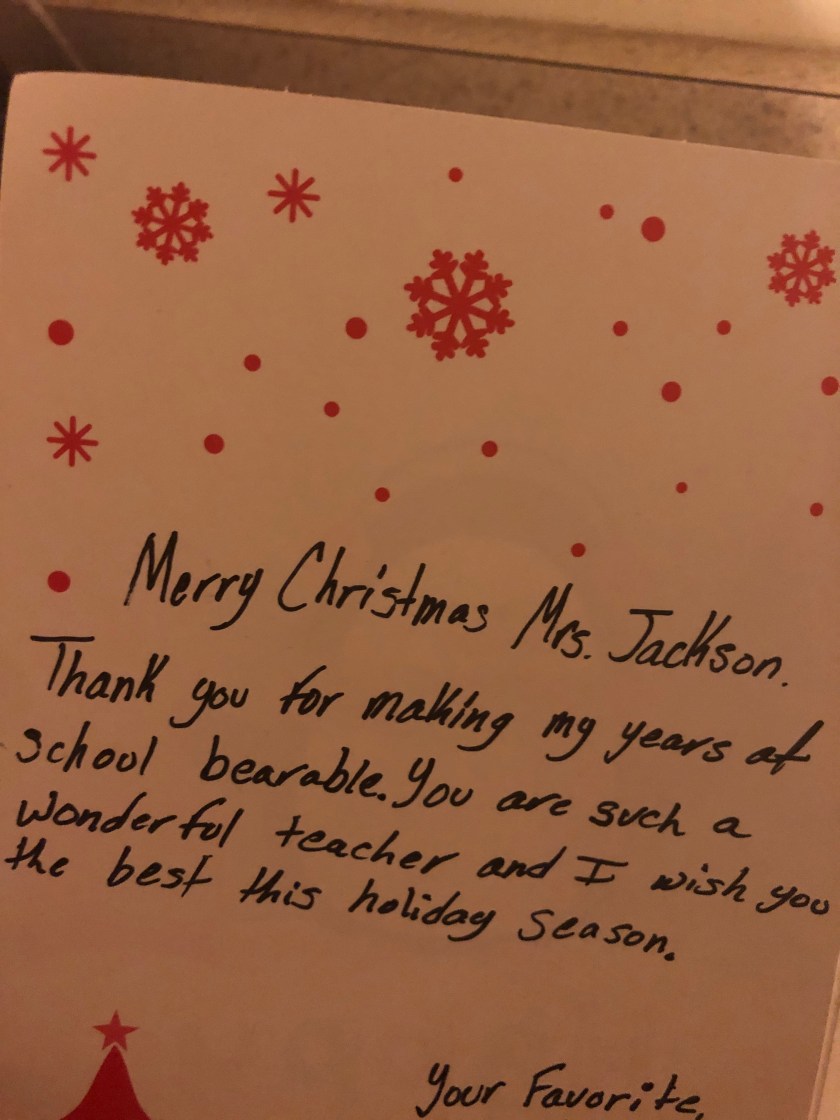 Merry Christmas Mrs. Jackson.
Thank you for making my years at
school bearable. You are such a
wonderful teacher and I wish you
the best this holiday season.
Your Favorite,